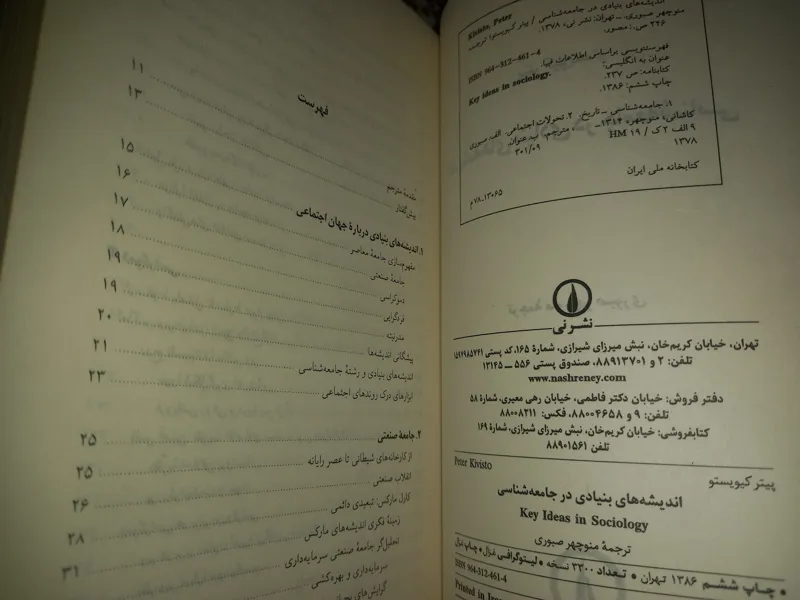 Kivisto, Peter
اندیشه‌های بنیادی در جامعه‌شناسی / پیتر کیویستو؛ ترجمهٔ
منوچهر صبوری. ـ تهران: نشر نی، ۱۳۷۸.
۲۴۶ ص.: مصور.
ISBN 964-312-461-4
فهرستنویسی براساس اطلاعات فیپا.
عنوان به انگلیسی:
Key ideas in sociology.
کتابنامه: ص. ۲۳۷.
چاپ ششم: ۱۳۸۶.
۱. جامعه‌شناسی ـ تاریخ. ۲. تحولات اجتماعی. الف. صبوری
کاشانی، منوچهر، ۱۳۱۴ـ ، مترجم. ب. عنوان.
۹ الف ۲ ک / HM ۱۹
۳۰۱/۰۹
۱۳۷۸
کتابخانه ملی ایران
۱۳۰۶۵ـ۷۸م
نشر نی
تهران، خیابان کریم‌خان، نبش میرزای شیرازی، شمارهٔ ۱۶۵، کد پستی ۱۵۹۷۹۸۵۷۴۱
تلفن: ۲ و ۸۸۹۱۳۷۰۱، صندوق پستی ۵۵۶ ــ ۱۳۱۴۵
www.nashreney.com
دفتر فروش: خیابان دکتر فاطمی، خیابان رهی معیری، شمارهٔ ۵۸
تلفن: ۹ و ۸۸۰۰۴۶۵۸، فکس: ۸۸۰۰۸۲۱۱
کتابفروشی: خیابان کریم‌خان، نبش میرزای شیرازی، شمارهٔ ۱۶۹
تلفن ۸۸۹۰۱۵۶۱
پیتر کیویستو
Peter Kivisto
اندیشه‌های بنیادی در جامعه‌شناسی
Key Ideas in Sociology
ترجمهٔ منوچهر صبوری
• چاپ ششم ۱۳۸۶ تهران • تعداد ۳۳۰۰ نسخه • لیتوگرافی غزال • چاپ غزال
ISBN 964-312-461-4
Printed in
فهرست
مقدمهٔ مترجم ۱۱
پیش‌گفتار ۱۳
۱. اندیشه‌های بنیادی دربارهٔ جهان اجتماعی ۱۵
مفهوم‌سازی جامعهٔ معاصر ۱۶
جامعهٔ صنعتی ۱۷
دموکراسی ۱۸
فردگرایی ۱۹
مدرنیته ۱۹
پیشگامی اندیشه‌ها ۲۰
اندیشه‌های بنیادی و رشتهٔ جامعه‌شناسی ۲۱
ابزارهای درک روندهای اجتماعی ۲۳
۲. جامعهٔ صنعتی ۲۵
از کارخانه‌های شیطانی تا عصر رایانه ۲۵
انقلاب صنعتی ۲۶
کارل مارکس: تبعیدی دائمی ۲۸
زمینهٔ فکری اندیشه‌های مارکس ۳۱
تحلیل‌گر جامعهٔ صنعتی سرمایه‌داری
سرمایه‌داری و بهره‌کشی
گرایش‌های